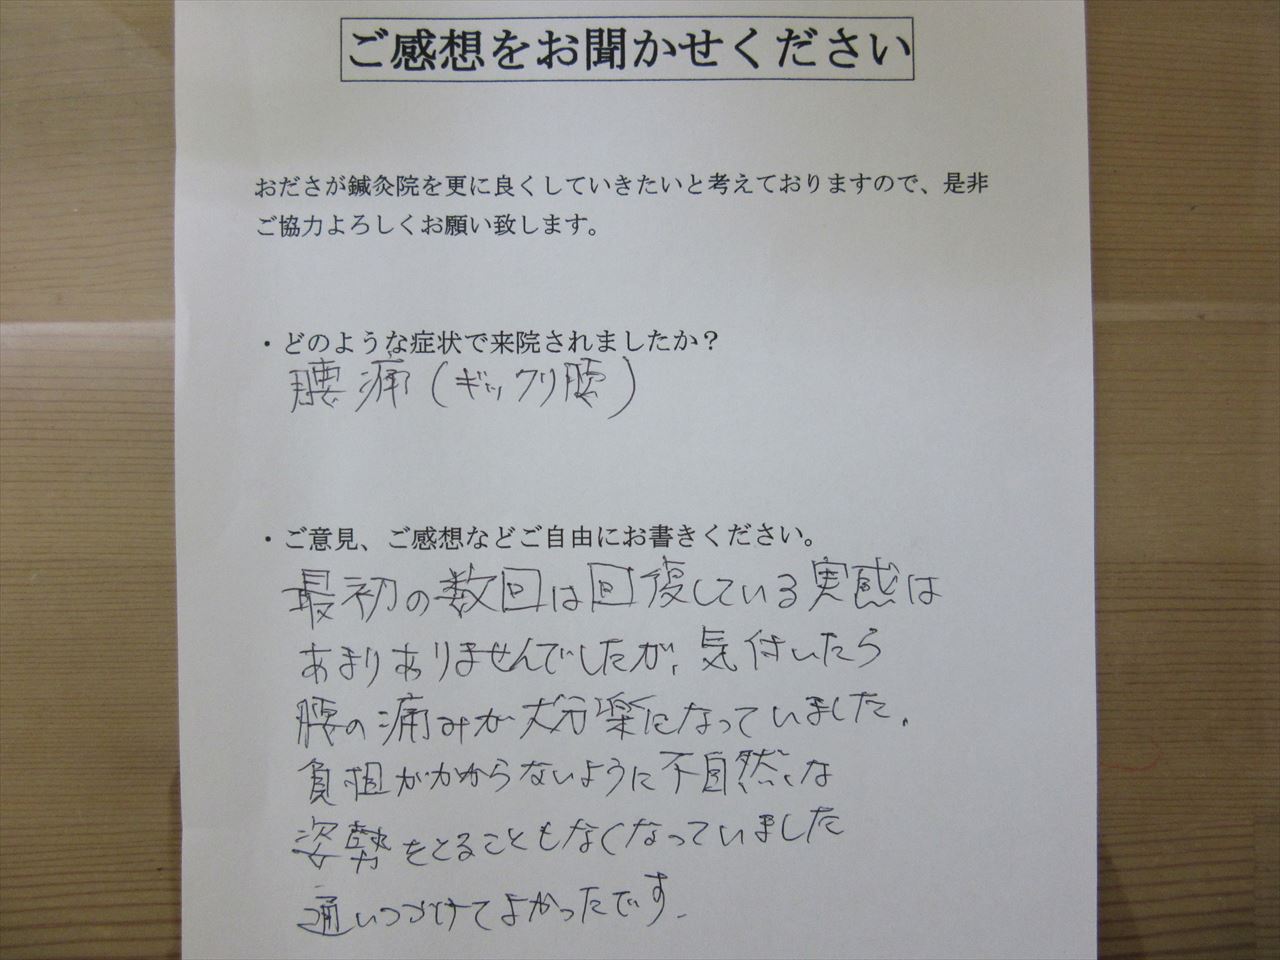 ご感想をお聞かせください
おださが鍼灸院を更に良くしていきたいと考えておりますので、是非
ご協力よろしくお願い致します。
・どのような症状で来院されましたか？
腰痛(ギックリ腰)
・ご意見、ご感想などご自由にお書きください。
最初の数回は回復している実感は
あまりありませんでしたが、気付いたら
腰の痛みが大分楽になっていました。
負担がかからないように不自然な
姿勢をとることもなくなっていました
通いつづけてよかったです。